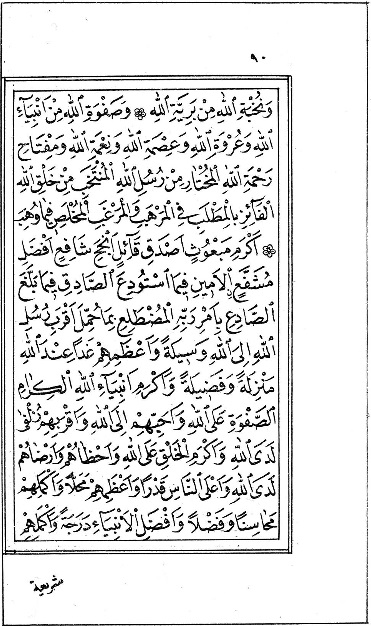 ٩٠
وَنُخْبَةِ اللهِ مِنْ بَرِيَّةِ اللهِ ۞ وَصَفْوَةِ اللهِ مِنْ اَنْبِيَاءِ
اللهِ وَعُرْوَةِ اللهِ وَعِصْمَةِ اللهِ وَنِعْمَةِ اللهِ وَمِفْتَاحِ
رَحْمَةِ اللهِ الْمُخْتَارِ مِنْ رُسُلِ اللهِ الْمُنْتَخَبِ مِنْ خَلْقِ اللهِ
الْفَائِزِ بِالْمَطْلَبِ فِي الْمَرْهَبِ وَالْمَرْغَبِ الْمُخْلَصِ فِيمَا وُهِبَ
۞ اَكْرَمِ مَبْعُوثٍ اَصْدَقِ قَائِلٍ اَنْجَحِ شَافِعٍ اَفْضَلِ
مُشَفَّعٍ الْاَمِينِ فِيمَا اسْتُودِعَ الصَّادِقِ فِيمَا بَلَّغَ
الصَّادِعِ بِاَمْرِ رَبِّهِ الْمُضْطَلِعِ بِمَا حُمِّلَ اَقْرَبِ رُسُلِ
اللهِ اِلَى اللهِ وَسِيلَةً وَاَعْظَمِهِمْ غَدًا عِنْدَ اللهِ
مَنْزِلَةً وَفَضِيلَةً وَاَكْرَمِ اَنْبِيَاءِ اللهِ الْكِرَامِ
الصَّفْوَةِ عَلَى اللهِ وَاَحَبِّهِمْ اِلَى اللهِ وَاَقْرَبِهِمْ زُلْفَى
لَدَى اللهِ وَاَكْرَمِ الْخَلْقِ عَلَى اللهِ وَاَحْظَاهُمْ وَاَرْضَاهُمْ
لَدَى اللهِ وَاَعْلَى النَّاسِ قَدْرًا وَاَعْظَمِهِمْ مَحَلًّا وَاَكْمَلِهِمْ
مَحَاسِنًا وَفَضْلًا وَاَفْضَلِ الْاَنْبِيَاءِ دَرَجَةً وَاَكْمَلِهِمْ
شريعة